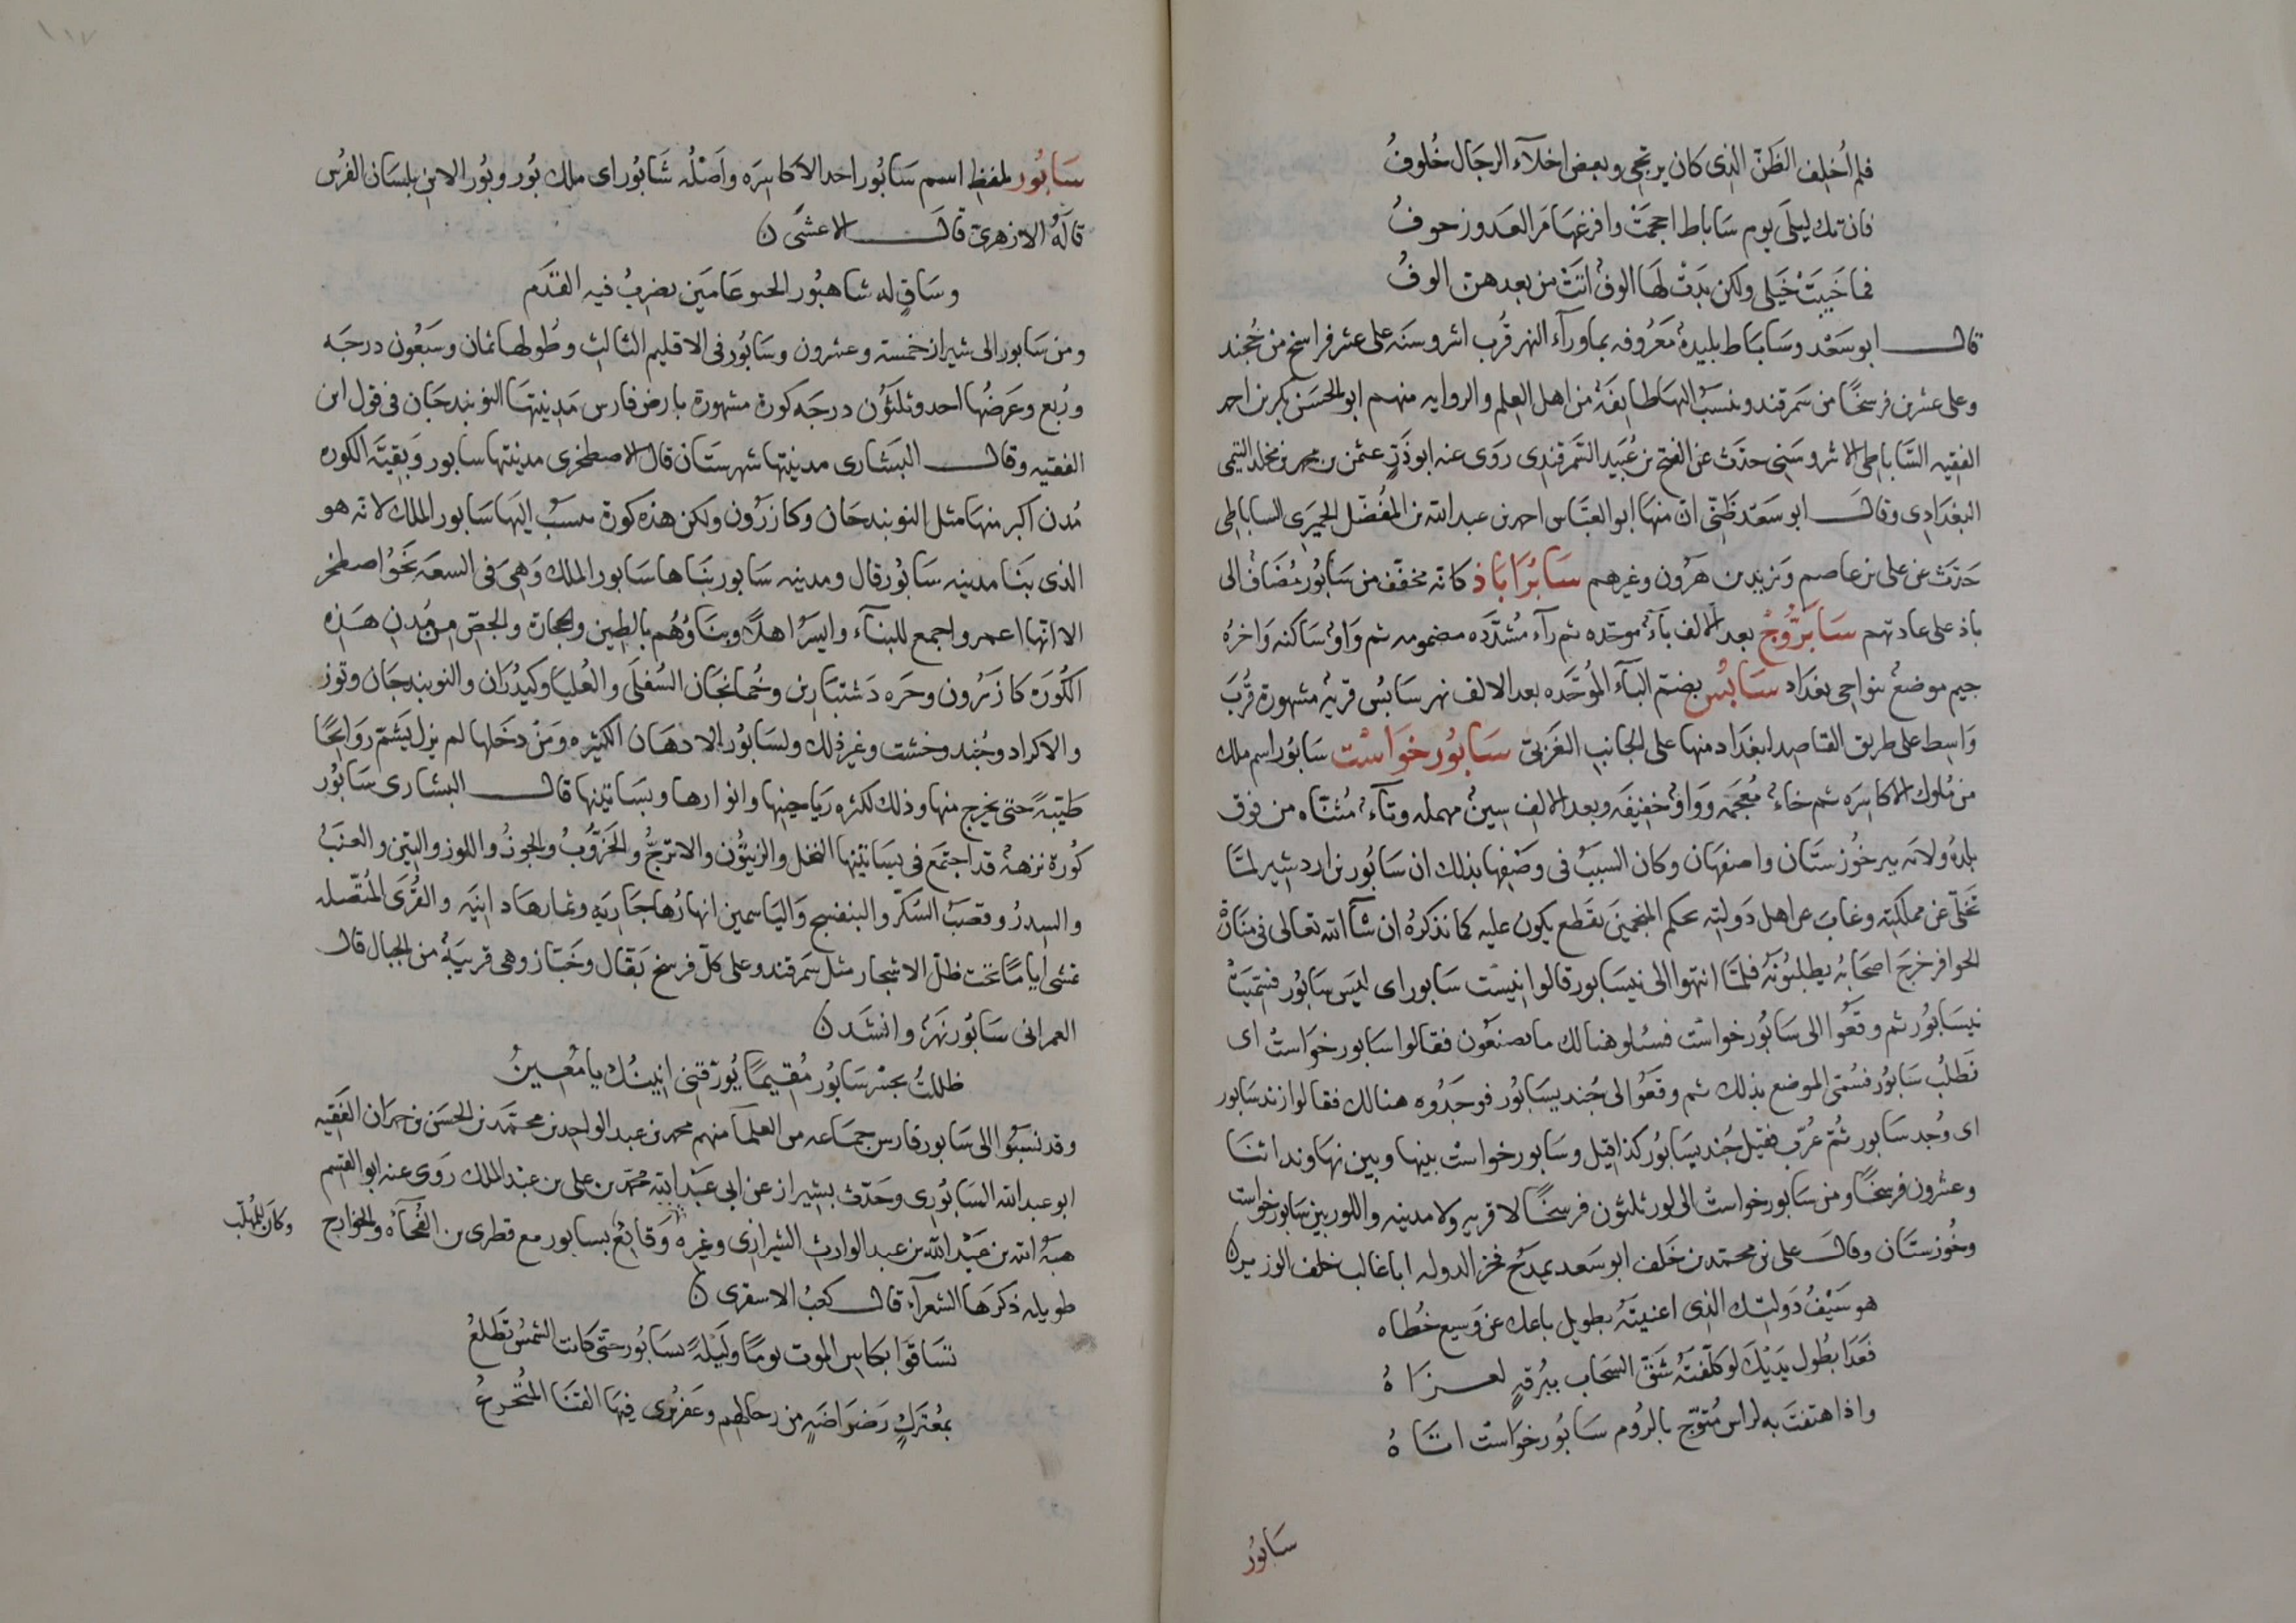 فلم اُخلِف الظَنّ الذى كان يرتجى وبعض اخلآء الرجَال خُلوفُ
فان تك ليلَى يوم سَاباط اجحمَتْ وافزعهَا مَر العَدو زحوفُ
فما خَيبَتْ خَيلى ولكن بَدتْ لهَا الوفٌ اتَتْ من بعدهن الوفُ
قال ابو سَعْد وسَابَاط بليدةٌ مَعَرُوفه بماورآء النهر قُرب اشروسنَه على عشر فراسخ من خُجند
وعلى عشرين فرسخًا من سَمرقند ونسَبُ اليهَا طايفَة من اهل العِلم والروايه منهم ابو الحسَن بكر بن احمد
الفقيه السَّاباطى الاشروسَنى حدّث عن الفتح بن عُبَيد السَّمرقندى رَوَى عنه ابو ذَرّ عثمن بن محمد بن مخلد التيمى
البغدَادى وقالَ ابو سَعْد ظَنّى انّ منهَا ابو العبَّاس احمد بن عبد الله بن المفُضَّل الحميَرى الساباطى
حَدّث عن على بن عاصم ويَزيد بن هَرُون وغيرهم سَابُرَابَاذ كانه مخفّف من سَابُور مُضَافٌ الى
باذ على عادتهم سَابَرُّوُجْ بعد الالف بَآءٌ موحّده ثم رآء مُشدّده مضمومه ثم وَاوٌ سَاكنه وَاخرُه
جيم موضعٌ بنواحى بغدَاد سَابُس بضمّ البآء الموُحَّده بعد الالف نهر سَابُس قريةٌ مشهورة قُربَ
وَاسِط على طريق القاصد لبغَداد منها على الجانب الغَربىّ سَابُور خوَاسْت سَابُور اسم ملك
من مُلوك الاكاسِرَه ثم خاءٌ مُعجَمه ووَاوٌ خفيفَه وبعد الالف سِينٌ مهمله وتآءٌ مُثنّاه من فوق
بلدةٌ ولايَه بين خُوزستَان واصفهَان وكان السببُ فى وصْفِها بذلك ان سَابُور بن اردشير لمّا
تخَلّى عن مملكته وغابَ عن اهل دَولته بحكم المنجمينَ بقَطع يكون عليه كما نذكرُه ان شآ الله تعالى فى منَارةْ
الحوافر خرجَ اصحَابُه يطلبُونَه فلمّا انتهوا الى نيسَابور قالوا نيَسْت سَابور اى ليَس سَابُور فسُميَتْ
نيسَابُور ثم وقعُوا الى سَابُور خواست فسُئلو هنالك ما تصنعُون فقالوا سَابور خوَاسْتْ اى
نَطلبُ سَابُور فسُمّى الموضع بذلك ثم وقَعُوا الى جُنديسَابُور فوجَدُوه هنالك فقالوا زند سَابور
اى وُجد سَابور ثُمّ عُرّب فقيل جُنديسَابُور كذا قيل وسَابور خواستْ بينها وبين نهَاوند اثنَا
وعشرون فرسخًا ومن سَابور خواستْ الى لور ثلثُون فرسخًا لا قريه ولا مدينه واللور بين سَابور خواست
وخُوزستَان وقالَ على بن محمّد بن خَلف ابو سَعد يمدَحُ فخر الدوله ابا غالب خلف الوزير ن
هو سَيْفُ دَولتِك الذى اغنيتَهُ بطويل باعك عن وَسيع خُطاه
فغَدَا بطُول يَدَيْك لو كلّفتَهُ شَقّ السَحاب ببُرقهِ لعزاهُ
واذا هتفتَ به لراس مُتوّج بالرُوم سَابُور خوَاست اتَاهُ
سَابُور
سَابُور بلفظ اسم سَابُور احد الاكاسِرَه واَصْلُه شَابُور اى ملك بُور وبُور الابن بلسَان الفُرس
قالَهُ الازهرىّ قالَ الاعشَى ن
وسَاقٍ له شاهبُور الجنو عَامَين يضربُ فيه القَدَم
ومن سَابور الى شيراز خمستَه وعشرون وسَابُور فى الاقليم الثالث وطُولها ثمان وسَبعُون درجَه
ورُبع وعَرضُها احد وثلثَوُن درجَه كورة مشهورة بارض فارس مَدينتهَا النوبندجَان فى قول ابن
الفقيه وقال البشارى مدينتها شهرستَان قال الاصطخرى مدينتها سابور وَبقيَّه الكوره
مُدن اكبر منهَا مثل النوبندجَان وكازرُون ولكن هذه كورة تنسبُ اليهَا سَابور الملك لانّه هو
الذى بنَا مدينه سَابُور قال ومدينه سَابور بنَاها سَابور الملك وَهِىَ فى السعَه نحَوُ اصطخر
الا انّها اعمر واجمع للبنآء وايسرُ اهلًا وبنَاوُهُم بالطين والحجارة والجصّ من مُدن هَذه
الكُورَه كازَرُون وجره دَشتبَارين وخُمايجَان السُفلَى والعُليَا وكيدُرَان والنوبندجَان وتوز
والاكراد وجُند وخشت وغير ذلك ولسَابُور الادهَان الكثيره وَمَنْ دخَلها لم يزل يَشتمّ روَايحًا
طيّبةً حتى يخرج منها وذلك لكثره ريَاحينها وانوارها وبسَاتينها قال البشارى سَابُور
كُورة نزهةٌ قد اجتمَع فى بسَاتينها النخل والزيتُون والاترجُّ والخرّوُبُ والجوزُ واللوز والتين والعنَبُ
والسِدرُ وقصَبُ السُكّر والبنفسج وَاليَاسمين انهارُها جَاريَه وثمارهَا دانيَه والقُرَى المُتّصله
تمشى ايامًا تحت ظلّ الاشجار مثل سَمرقند وعلى كلّ فرسخ بَقال وخَبّاز وهى قريبَةٌ من الجبال قال
العمرانى سَابُور نَهرٌ وانشَد ن
ظللتُ بجسْر سَابُور مُقيمًا يُورّقنى انينُك يا مُعينُ
وقد نسَبُوا الى سَابور فارس جمَاعه من العلمآ منهم محمد بن عبد الواحد بن محمّد بن الحسَن بن حمرَان الفَقيه
ابو عبد الله السَابُورى وحَدّث بشيراز عن ابى عَبْد الله محمّد بن على بن عبْد الملك رَوَى عنه ابو القسم
هبَةُ الله بن عَبْد الله بن عبد الوارث الشيرازى وغيره وَقايعُ بسابور مع قطرى بن الفُجآه والخوارج
وكان للمُهلّب
طويله ذكرَها الشعرآءُ قال كعبُ الاشقرى ن
تسَاقَوا بكاس الموت يومًا ولَيلةً بسَابُور حتّى كانت الشمسُ تَطلعُ
بمُعترَكٍ رَضرَاضَهٍ من رحالهم وعَفرٌ يرى فيهَا القنَا المُتجرعُ